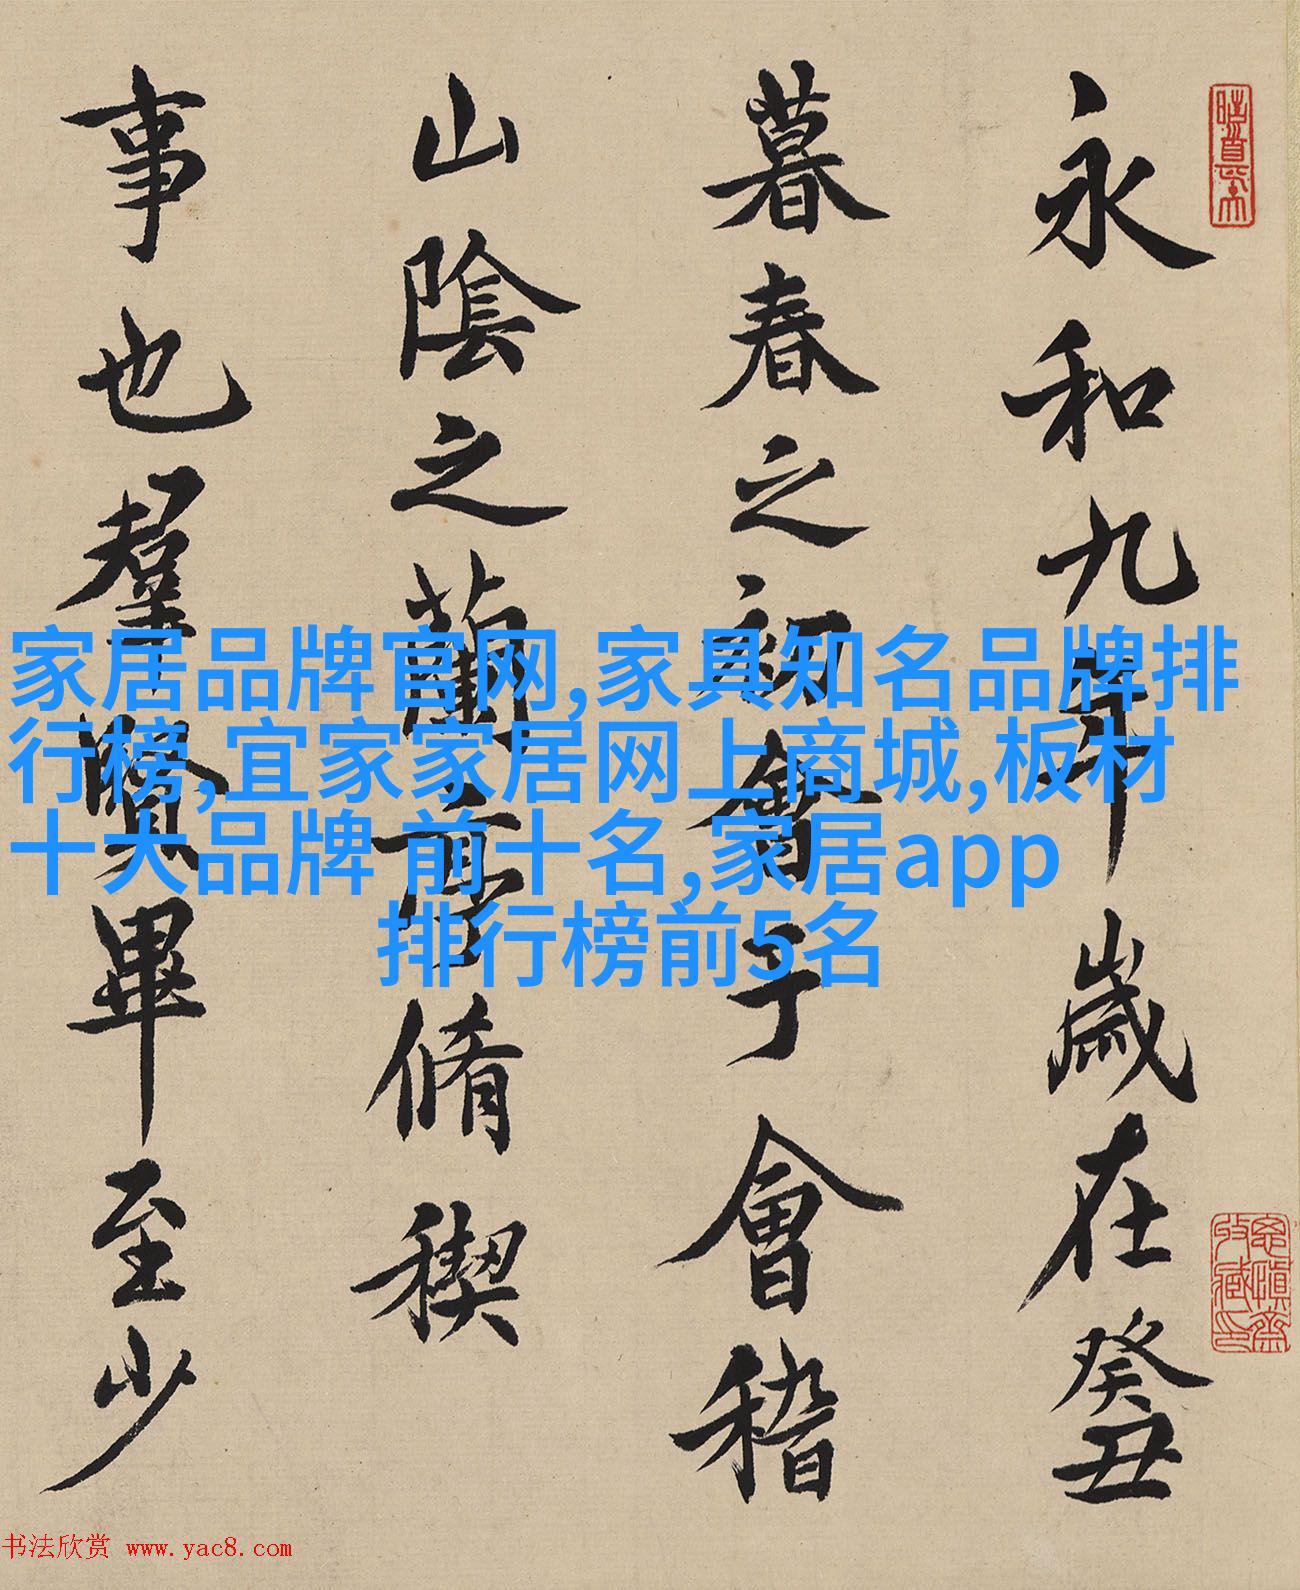 永和九年歲在癸丑
暮春之初會于會稽
山陰之蘭亭脩稧
事也羣賢畢至少
家居品牌官网,家具知名品牌排
行榜,宜家家居网上商城,板材
十大品牌 前十名,家居app
排行榜前5名
书法欣赏 www.yac8.com